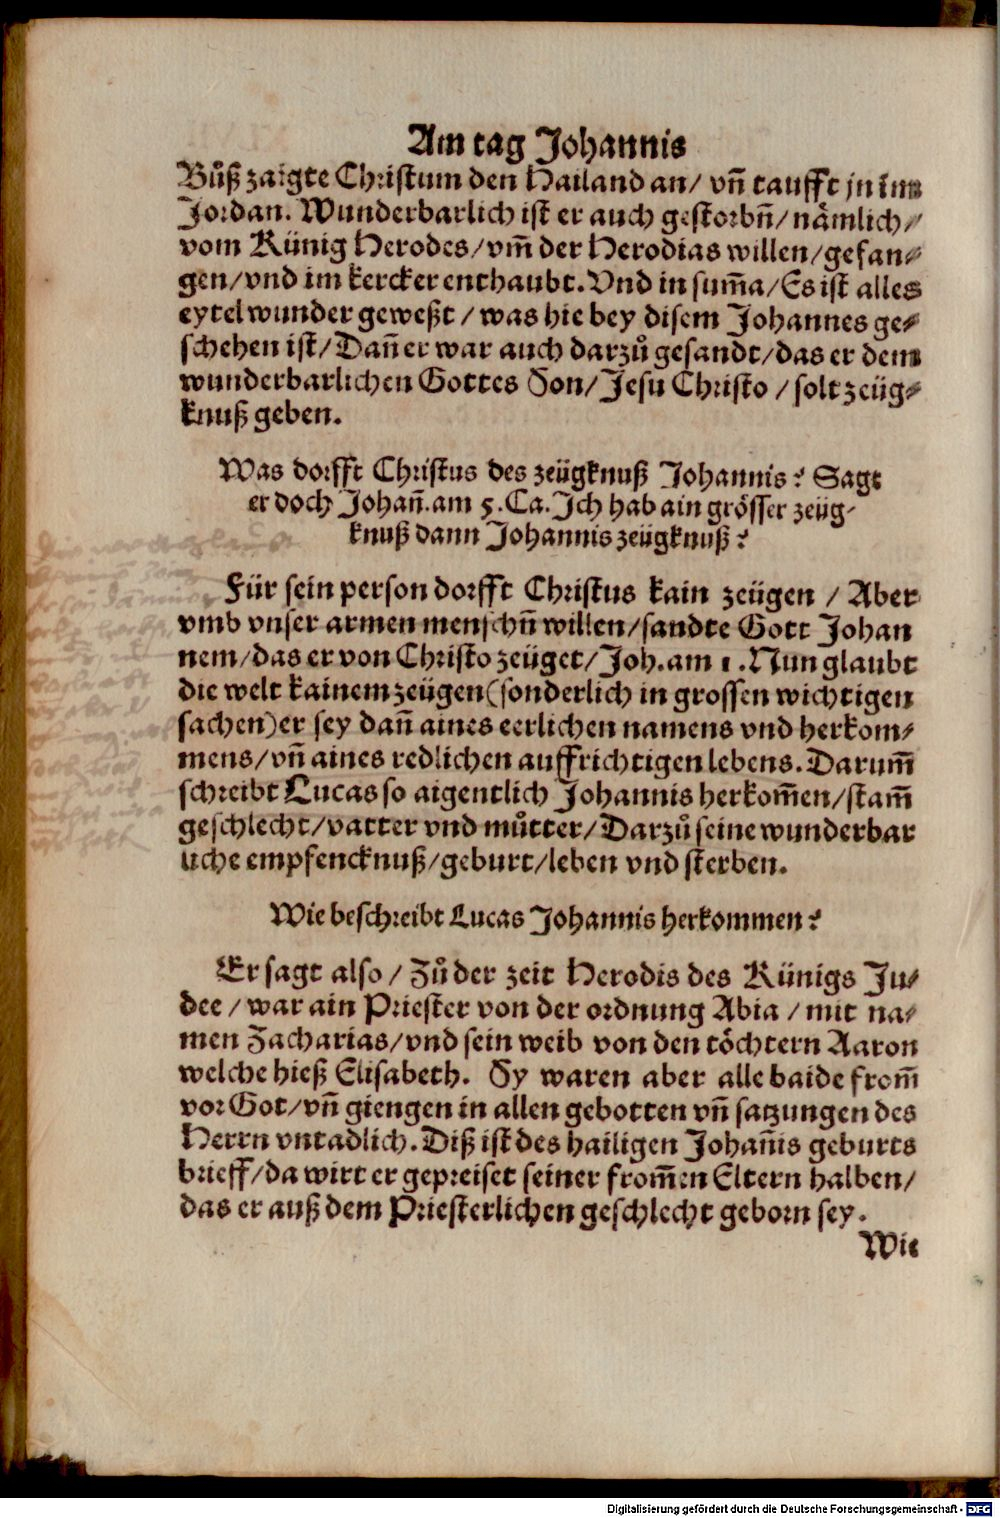 Am tag Johannis
Bůß zaigte Christum den Hailand an/ vñ taufft jn im
Jordan. Wunderbarlich ist er auch gestorbñ/ nämlich/
vom Künig Herodes/ vm̃ der Herodias willen/ gefan-
gen/ vnd im kercker enthaubt. Vnd in sum̃a/ Es ist alles
eytel wunder geweßt/ was hie bey disem Johannes ge-
schehen ist/ Dañ er war auch darzů gesandt/ das er dem
wunderbarlichen Gottes Son/ Jesu Christo/ solt zeüg-
knuß geben.
Was dorfft Christus des zeügknuß Johannis? Sagt
er doch Johañ. am 5. Ca. Ich hab ain grösser zeüg-
knuß dann Johannis zeügknuß?
Für sein person dorfft Christus kain zeügen/ Aber
vmb vnser armen menschñ willen/ sandte Gott Johan
nem/ das er von Christo zeüget/ Joh. am 1. Nun glaubt
die welt kainem zeügen (sonderlich in grossen wichtigen
sachen) er sey dañ aines eerlichen namens vnd herkom-
mens/ vñ aines redlichen auffrichtigen lebens. Darum̃
schreibt Lucas so aigentlich Johannis herkom̃en/ stam̃
geschlecht/ vatter vnd můtter/ Darzů seine wunderbar
liche empfencknuß/ geburt/ leben vnd sterben.
Wie beschreibt Lucas Johannis herkommen?
Er sagt also/ Zů der zeit Herodis des Künigs Ju-
dee/ war ain Priester von der ordnung Abia/ mit na-
men Zacharias/ vnd sein weib von den töchtern Aaron
welche hieß Elisabeth. Sy waren aber alle baide from̃
vor Got/ vñ giengen in allen gebotten vñ satzungen des
Herrn vntadlich. Diß ist des hailigen Johañis geburts
brieff/ da wirt er gepreiset seiner from̃en Eltern halben/
das er auß dem Priesterlichen geschlecht geborn sey.
Wie
Digitalisierung gefördert durch die Deutsche Forschungsgemeinschaft - DFG